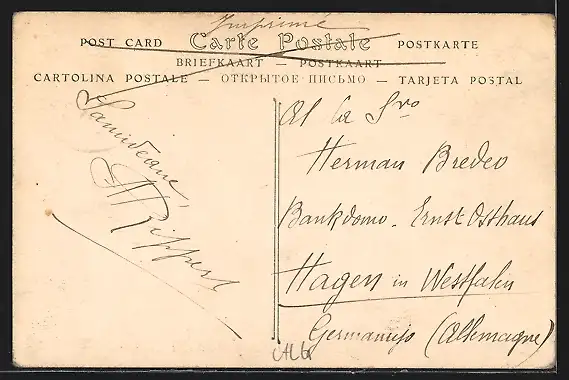 Imprimé
POST CARD Carte Postale POSTKARTE
BRIEFKAART — POSTKAART
CARTOLINA POSTALE — ОТКРЫТОЕ ПИСЬМО — TARJETA POSTAL
Samideane,
Rippert
Al la Sro
Herman Bredeo
Bankdomo. Ernst Osthaus
Hagen in Westfalen
Germanujo (Allemagne)